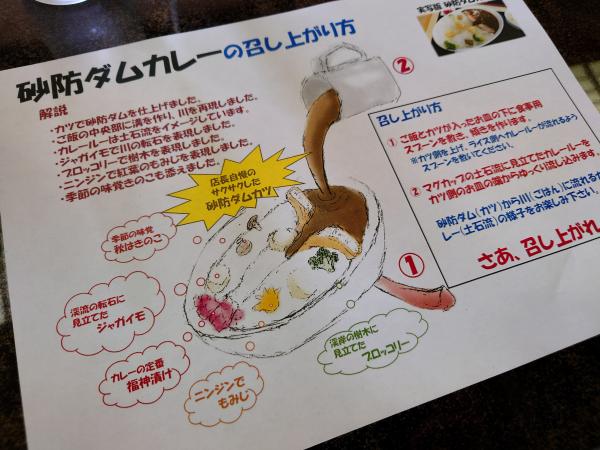 砂防ダムカレーの召し上がり方
実写版 砂防ダム
解説
・カツで砂防ダムを仕上げました。
・ご飯の中央部に溝を作り、川を再現しました。
・カレールーは土石流をイメージしています。
・ジャガイモで川の転石を表現しました。
・ブロッコリーで樹木を表現しました。
・ニンジンで紅葉のもみじを表現しました。
・季節の味覚きのこも添えました。
店長自慢の
サクサクした
砂防ダムカツ
②
①
季節の味覚
秋はきのこ
渓流の転石に
見立てた
ジャガイモ
カレーの定番
福神漬け
ニンジンで
もみじ
渓岸の樹木に
見立てた
ブロッコリー
召し上がり方
① ご飯とカツが入ったお皿の下に食事用
スプーンを敷き、傾きを作ります。
※カツ側を上げ、ライス側へカレールーが流れるよう
スプーンを敷いてください。
② マグカップの土石流に見立てたカレールーを
カツ側のお皿の端からゆっくり流し込みます。
砂防ダム(カツ)から川(ごはん)に流れるカ
レー(土石流)の様子をお楽しみ下さい。
さあ、召し上がれ